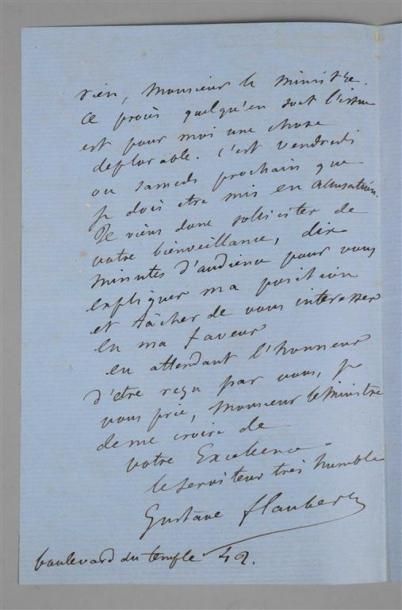 rien, Monsieur le Ministre.
Ce procès quelqu'en soit l'issue
est pour moi une chose
déplorable. C'est vendredi
ou samedi prochain que
je dois être mis en accusation.
Je viens donc solliciter de
votre bienveillance, dix
minutes d'audience pour vous
expliquer ma position
et tâcher de vous intéresser
en ma faveur
en attendant l'honneur
d'être reçu par vous, je
vous prie, Monsieur le Ministre
de me croire de
votre Excellence
le serviteur très humble
Gustave Flaubert
boulevard du temple 42.